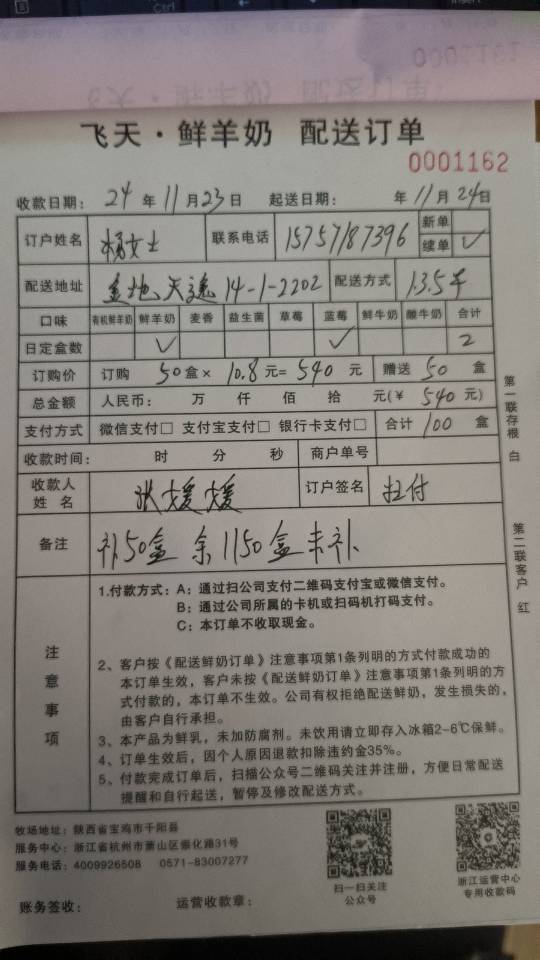 Ctrl
0001161
飞天·鲜羊奶 配送订单
0001162
收款日期: 24 年 11 月 23 日 起送日期: 年 11 月 24 日
订户姓名 杨女士 联系电话 15757187396 新单
续单 ✓
配送地址 金地天逸 14-1-2202 配送方式 1.3.5 午
口味 有机鲜羊奶 鲜羊奶 麦香 益生菌 草莓 蓝莓 鲜牛奶 酸牛奶 合计
日定盒数 ✓ ✓ 2
订购价 订购 50 盒× 10.8 元= 540 元 赠送 50 盒
总金额 人民币: 万 仟 佰 拾 元(¥ 540 元)
支付方式 微信支付□ 支付宝支付□ 银行卡支付□ 合计 100 盒
收款时间: 时 分 秒 商户单号
收款人姓名 张媛媛 订户签名 扫付
备注 补50盒 余1150盒未补
注意事项
1.付款方式: A: 通过扫公司支付二维码支付宝或微信支付。
B: 通过公司所属的卡机或扫码机打码支付。
C: 本订单不收取现金。
2、客户按《配送鲜奶订单》注意事项第1条列明的方式付款成功的
本订单生效，客户未按《配送鲜奶订单》注意事项第1条列明的方
式付款的，本订单不生效。公司有权拒绝配送鲜奶，发生损失的，
由客户自行承担。
3、本产品为鲜乳，未加防腐剂。未饮用请立即存入冰箱2-6℃保鲜。
4、订单生效后，因个人原因退款扣除违约金35%。
5、付款完成订单后，扫描公众号二维码关注并注册，方便日常配送
提醒和自行起送，暂停及修改配送方式。
第一联存根 白
第二联客户 红
牧场地址: 陕西省宝鸡市千阳县
服务中心: 浙江省杭州市萧山区崇化路31号
服务电话: 4009926508 0571-83007277
扫一扫关注
公众号
浙江运营中心
专用收款码
账务签收: 运营收款章: